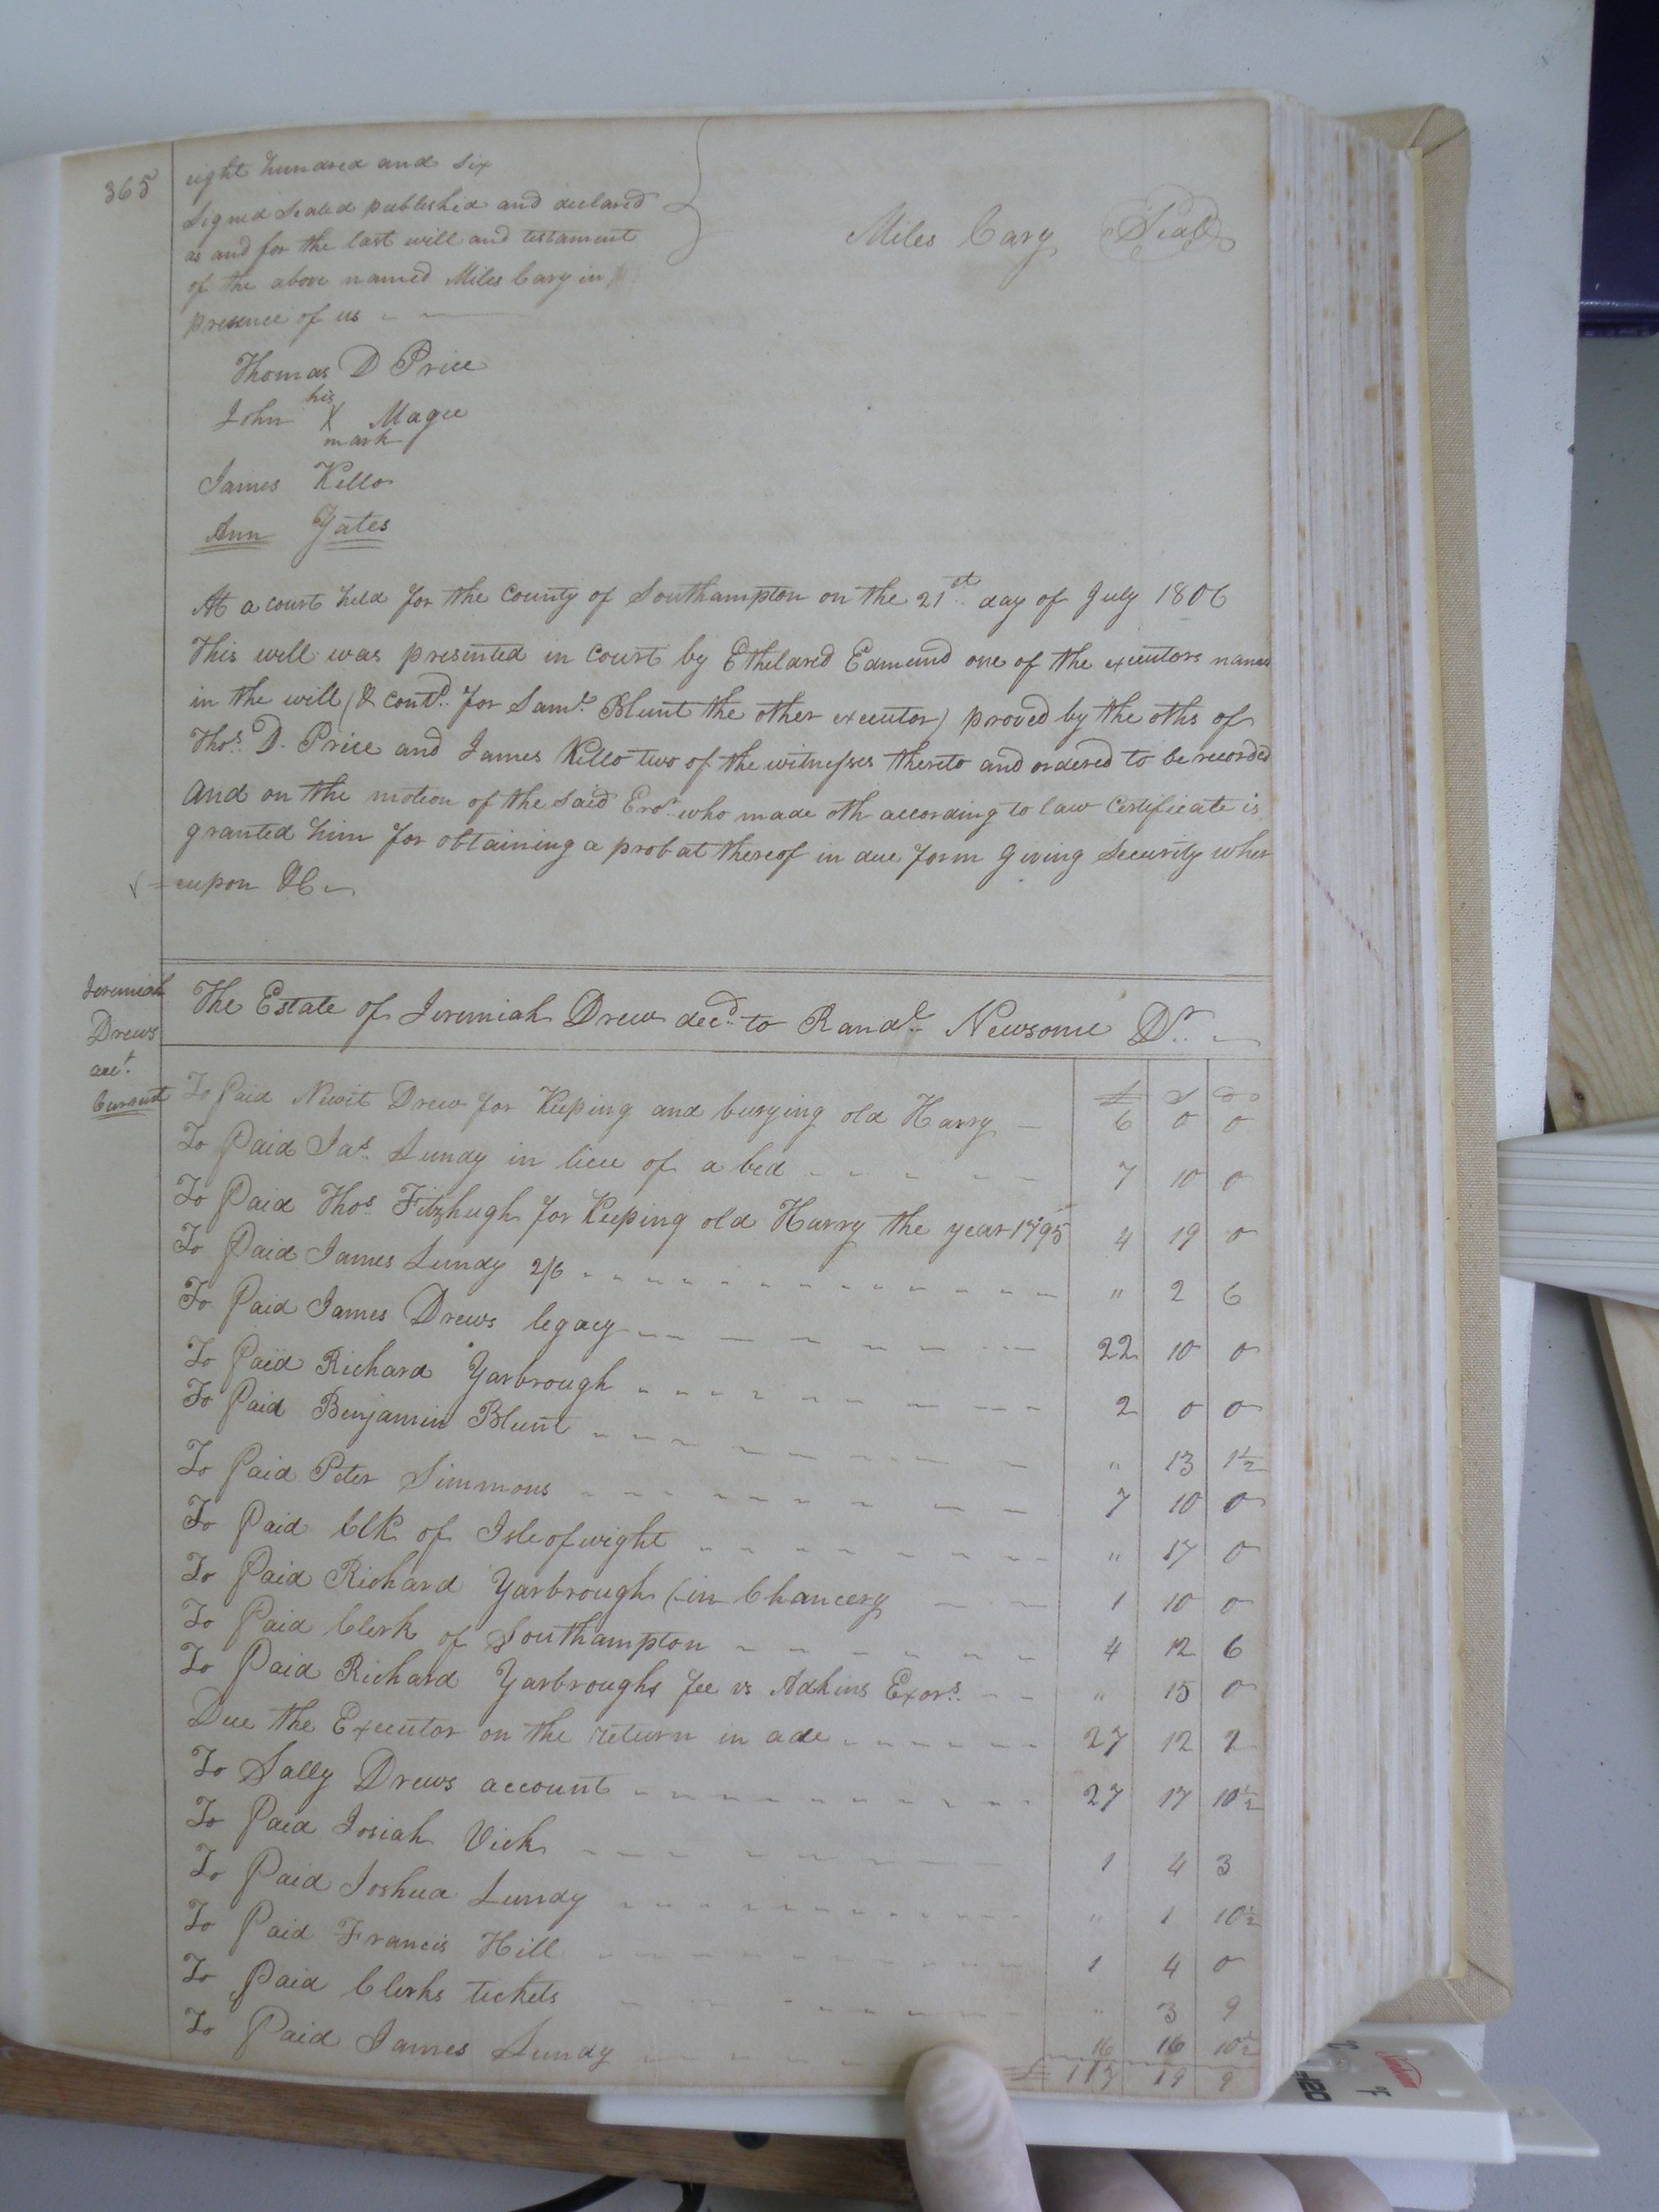 365
eight hundred and six
Signed Sealed published and declared
as and for the last will and testament
of the above named Miles Cary in
presence of us
Miles Cary Seal
Thomas D Price
his
John X Magee
mark
James Kello
Ann Yates
At a court held for the County of Southampton on the 21st day of July 1806
This will was presented in Court by Etheldred Edmund one of the executors named
in the will (& contd. for Saml. Blunt the other executor) proved by the oths of
Thos. D. Price and James Kello two of the witnesses thereto and ordered to be recorded
And on the motion of the said Exor. who made oth according to law Certificate is
granted him for obtaining a probat thereof in due form Giving Security wher
eupon &C
Jeremiah
Drews
acct.
Current
The Estate of Jeremiah Drew decd. to Randl. Newsome Dr.
£ S D
To Paid Newit Drew for Keeping and burying old Harry 6 0 0
To Paid Jas. Lundy in lieu of a bed 7 10 0
To Paid Thos. Fitzhugh for Keeping old Harry the year 1795 4 19 0
To Paid James Lundy 2/6 " 2 6
To Paid James Drews legacy 22 10 0
To Paid Richard Yarbrough 2 0 0
To Paid Benjamin Blunt " 13 1½
To Paid Peter Simmons 7 10 0
To Paid Clk of Isle of wight " 17 0
To Paid Richard Yarbrough (in Chancery 1 10 0
To Paid Clerk of Southampton 4 12 6
To Paid Richard Yarbroughs fee vs Adkins Exors. " 15 0
Due the Executor on the return in 27 12 2
To Sally Drews account 27 17 10½
To Paid Josiah Vick 1 4 3
To Paid Joshua Lundy " 1 10½
To Paid Francis Hill 1 4 0
To Paid Clerks tickets " 3 9
To Paid James Lundy 16 16 10½
£ 19 9